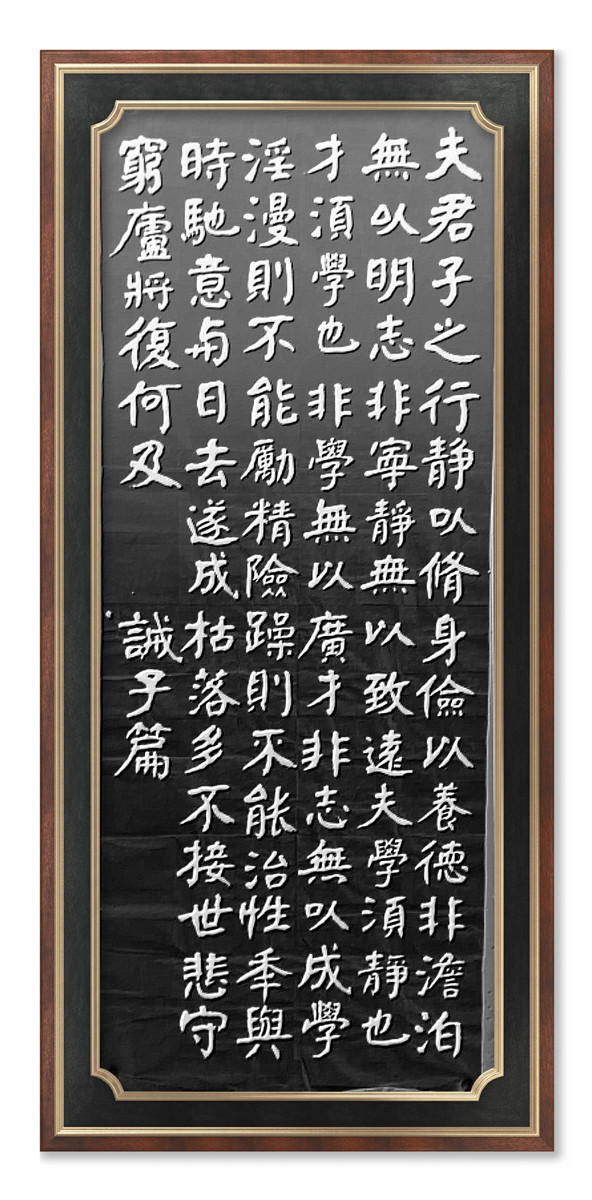 夫君子之行靜以脩身儉以養德非澹泊
無以明志非寧靜無以致遠夫學須靜也
才須學也非學無以廣才非志無以成學
淫漫則不能勵精險躁則不能治性秊與
時馳意与日去遂成枯落多不接世悲守
窮廬將復何及 誡子篇